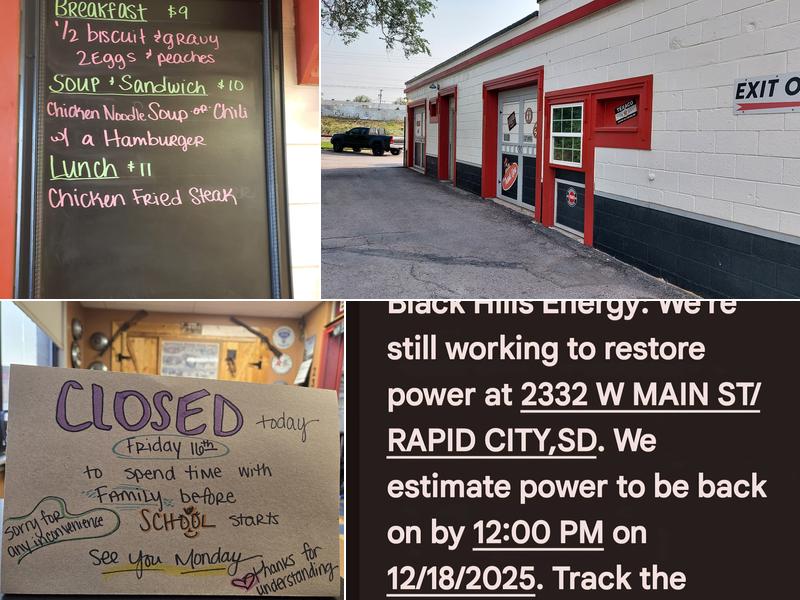 Breakfast $9
1/2 biscuit & gravy
2 Eggs & peaches
Soup & Sandwich $10
Chicken Noodle Soup or Chili
w/ a Hamburger
Lunch $11
Chicken Fried Steak
TEXACO
EXIT O
CLOSED today
Friday 16th
to spend time with
Family before
SCHOOL starts
sorry for
any inconvenience
See You Monday
thanks for
understanding
Black Hills Energy: We're
still working to restore
power at 2332 W MAIN ST/
RAPID CITY,SD. We
estimate power to be back
on by 12:00 PM on
12/18/2025. Track the